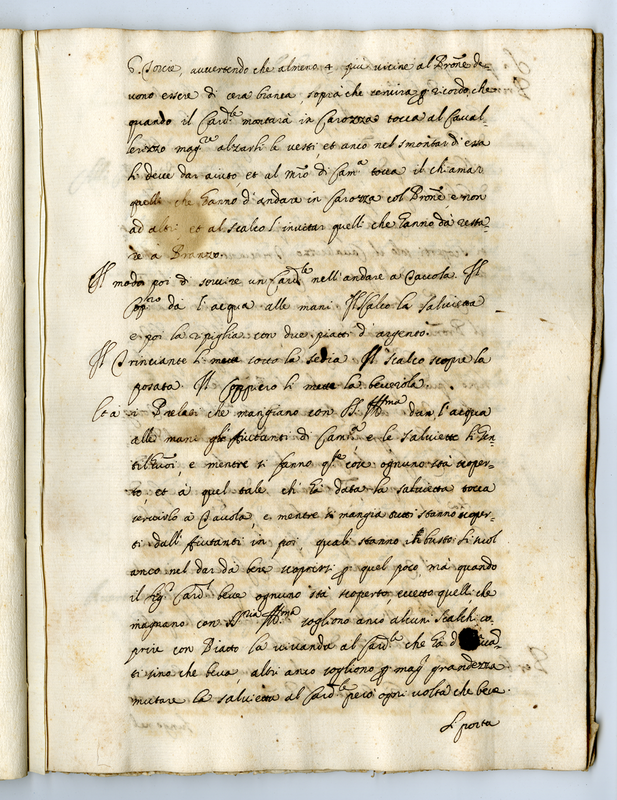 6. Torcie, avvertendo che almeno 4 piu vicine al Pr̃one de-
vono essere di cera bianca, sopra che servira p ricordo, che
quando il Card.le montarà in Carozza tocca al Caval-
lerizzo mag.re alzarli le vesti, et anco nel smontar d'essa
li deve dar aiuto, et al m̃ro di Cam.a tocca il chiamar
quelli che hanno d'andare in Carozza col Pr̃one e non
ad altri, et al scalco l'invitar quelli che hanno da resta-
re a Pranzo.
Il modo poi di servire un Card.le nell'andare a Tavola. Il
Cop.ro dà l'acqua alle mani Il Scalco la salvietta
e poi la ripiglia con due piatti d'argento.
Il Trinciante li mette sotto la sedia Il scalco scopre la
posata Il Coppiero li mette la beverola.
Et à i Prelati che mangiano con S. Ill̃ma dan l'acqua
alle mani gli Aiutanti di Cam.a e le salviette li Gen-
til'huoi, e mentre si fanno q.te cose ognuno stà scoper-
to, et à quel tale chi hà data la salvietta tocca
servirlo à Tavola, e mentre si mangia tutti stanno scoper-
ti dall'Aiutanti in poi, quali stanno in busto si suol
anco nel dar da bere scoprirsi p quel poco, mà quando
il Sig.r Card.l beve ognuno stà scoperto, eccetto quelli che
magnano con S.ria Ill̃ma sogliono anco alcuni scalchi co-
prire con Piatto la vivanda al Card.le che hà avan-
ti sino che beva altri anco sogliono p mag.r grandezza
mutare la salvietta al Card.le però ogni volta che beve.
Si porta